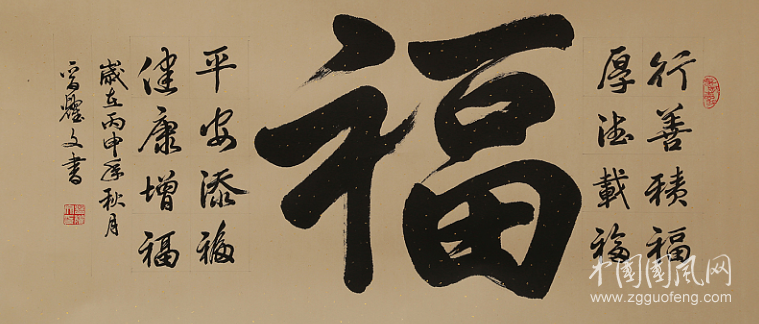 行善積福
厚德載福
福
平安添福
健康增福
歲在丙申年秋月
耀文書
中国国风网
www.zgguofeng.com